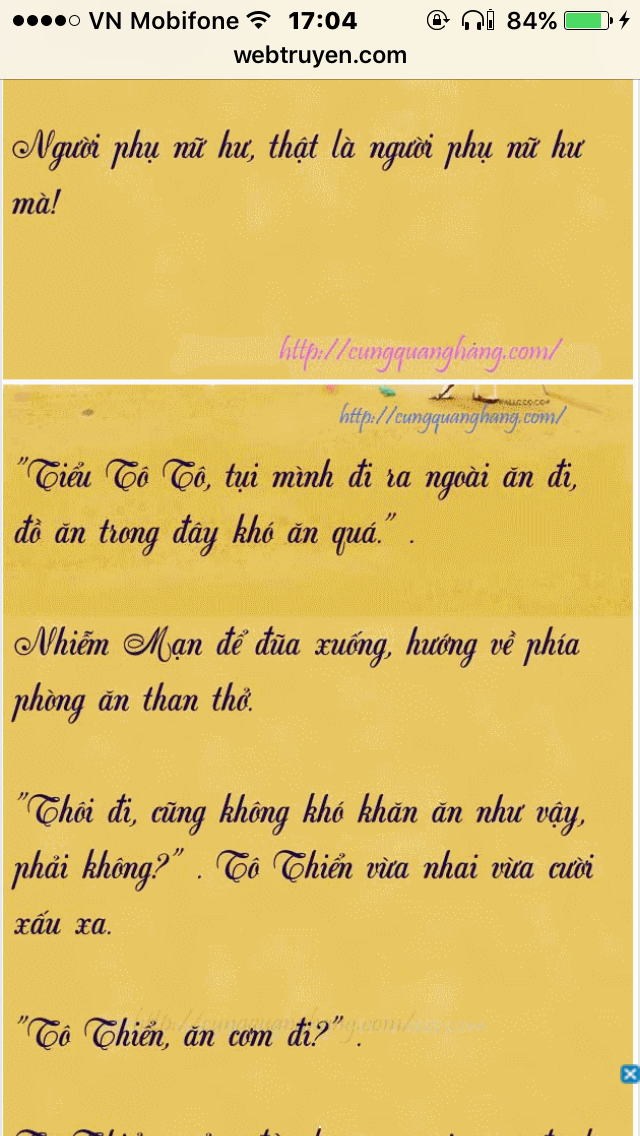 VN Mobifone 17:04 84%
webtruyen.com
Người phụ nữ hư, thật là người phụ nữ hư
mà!
http://cungquanghang.com/
http://cungquanghang.com/
"Tiểu Tô Tô, tụi mình đi ra ngoài ăn đi,
đồ ăn trong đây khó ăn quá." .
Nhiễm Mạn để đũa xuống, hướng về phía
phòng ăn than thở.
"Thôi đi, cũng không khó khăn ăn như vậy,
phải không?" . Tô Thiển vừa nhai vừa cười
xấu xa.
"Tô Thiển, ăn cơm đi?" .